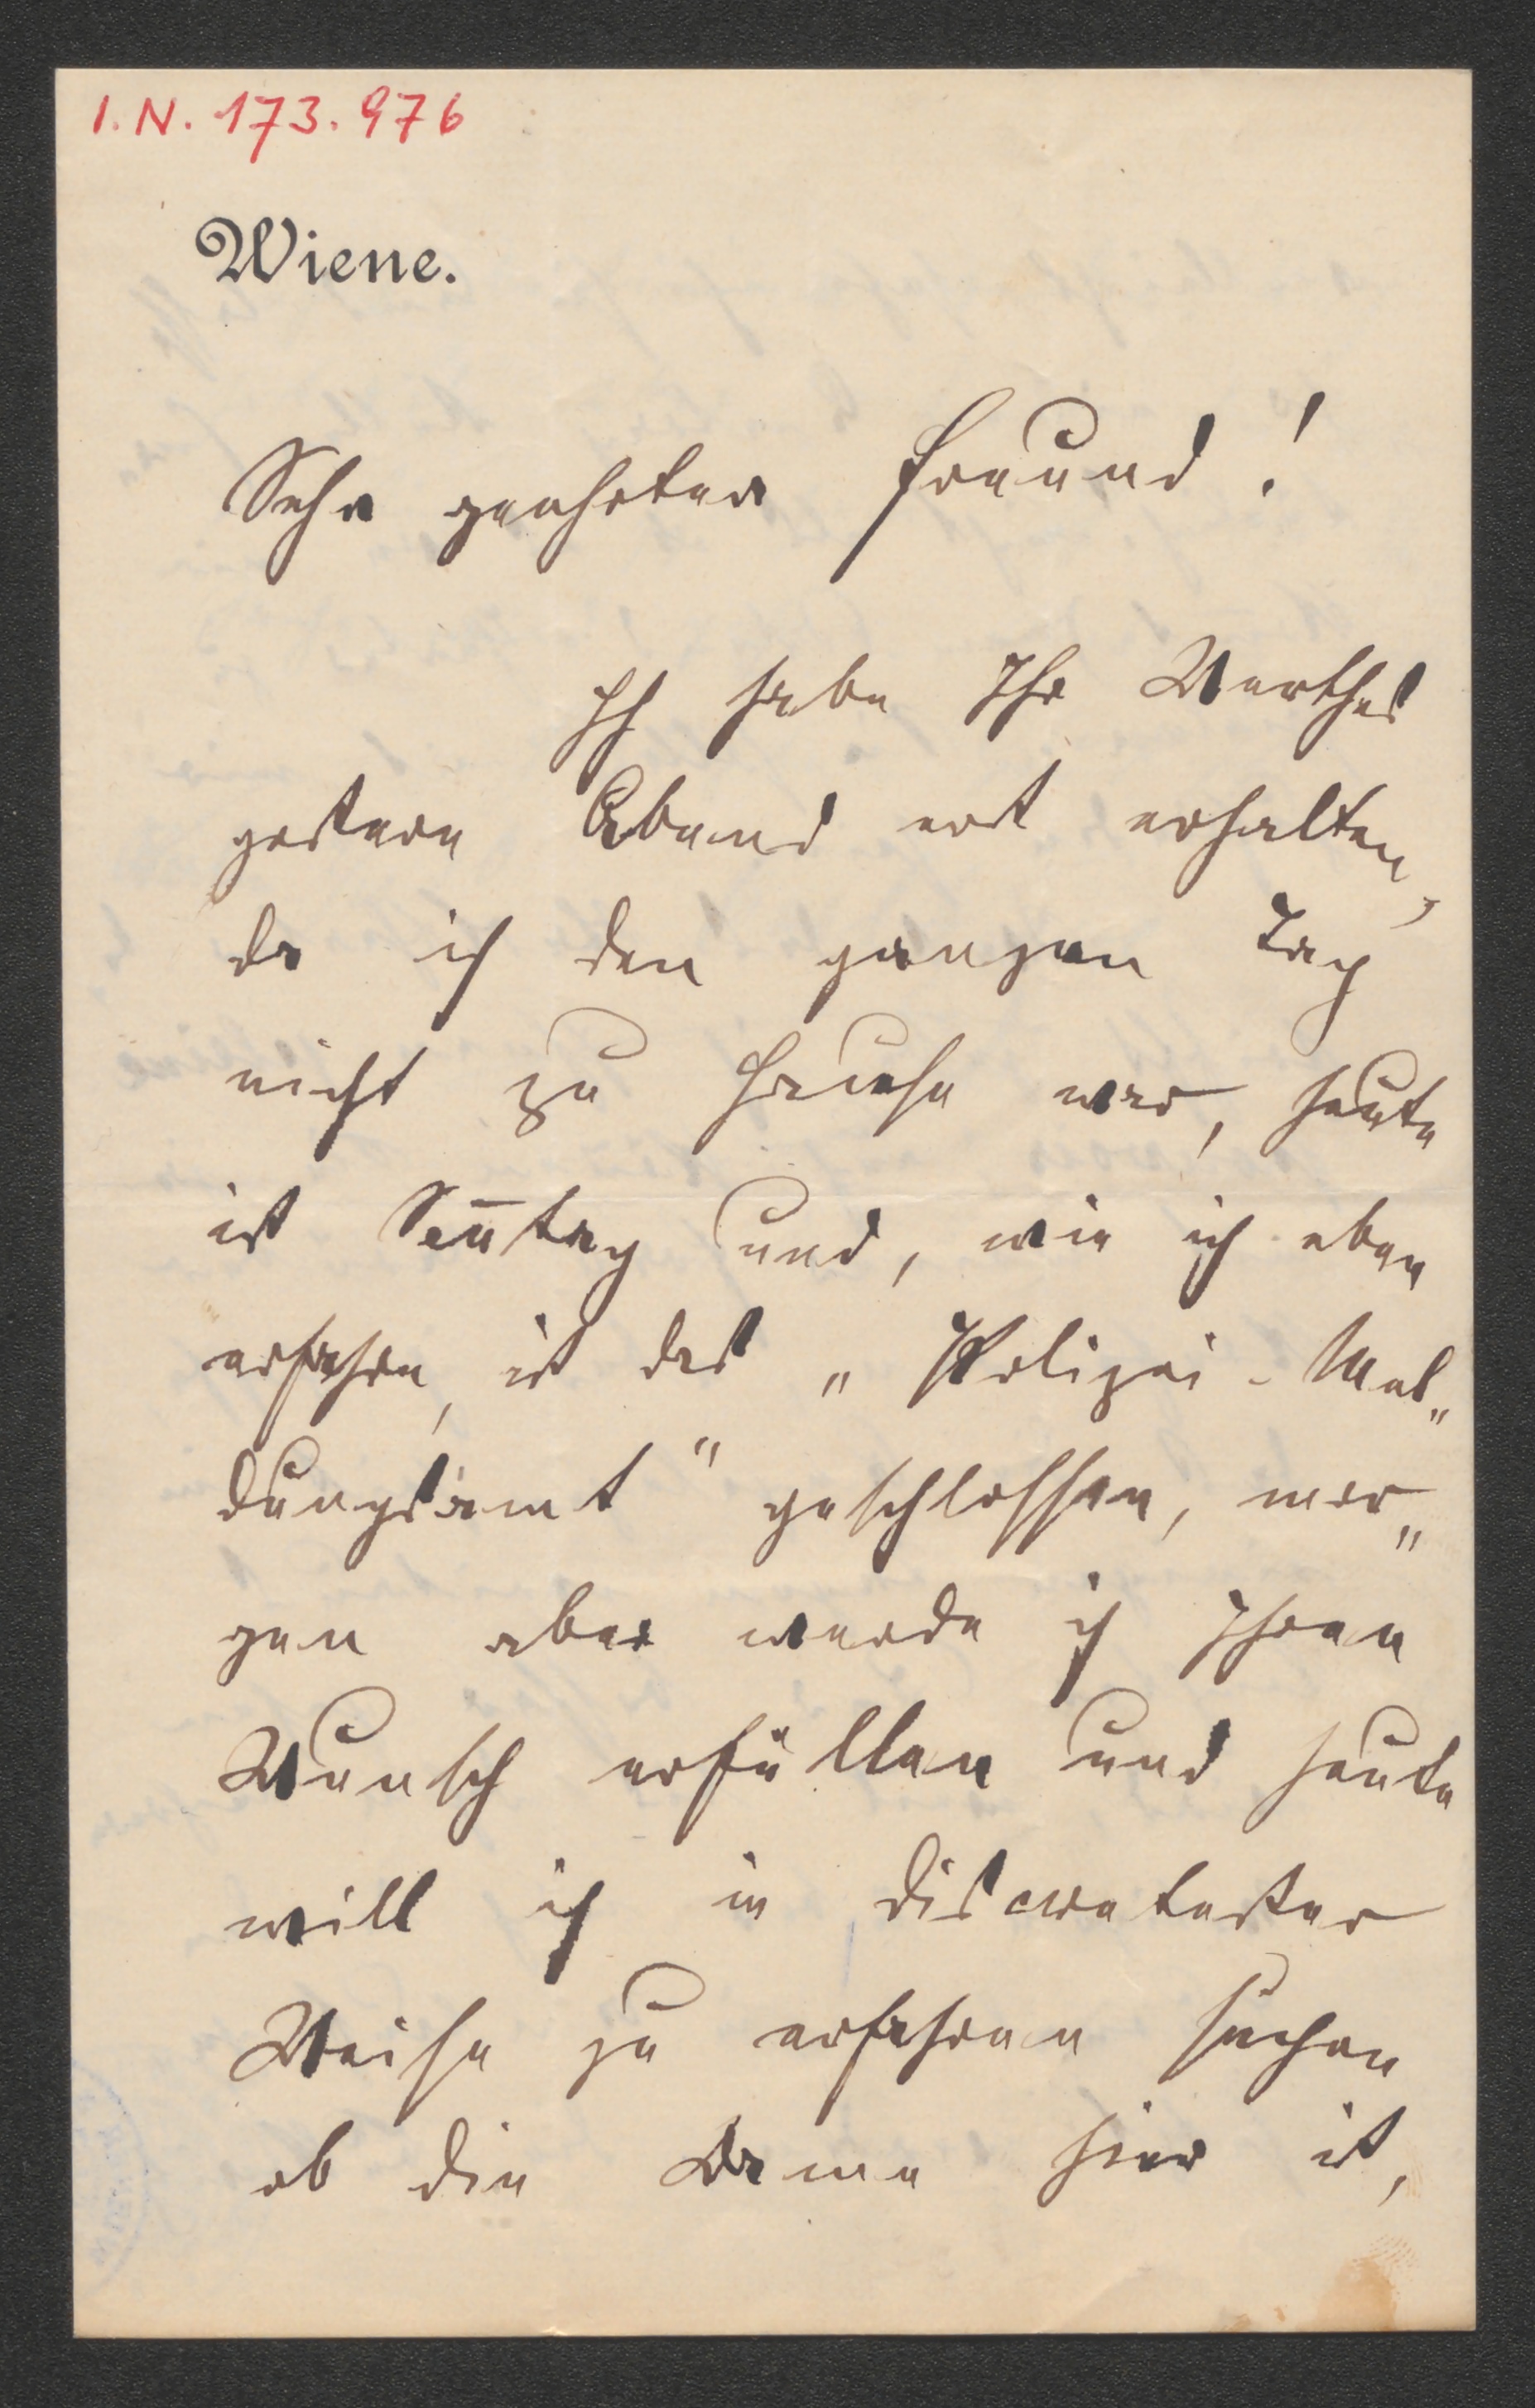 I.N. 173.976
Wiene.
Sehr geehrter Freund!
Ich habe Ihr Werthes
gestern Abend erst erhalten,
da ich den ganzen Tag
nicht zu Hause war, heute
ist Son̄tag und, wie ich eben
erfahre, ist das „Polizei-Mel„
dungsamt" geschlossen, mor„
gen aber werde ich Ihren
Wunsch erfüllen und heute
will ich in discretester
Weise zu erfahren suchen
ob die Dame hier ist,